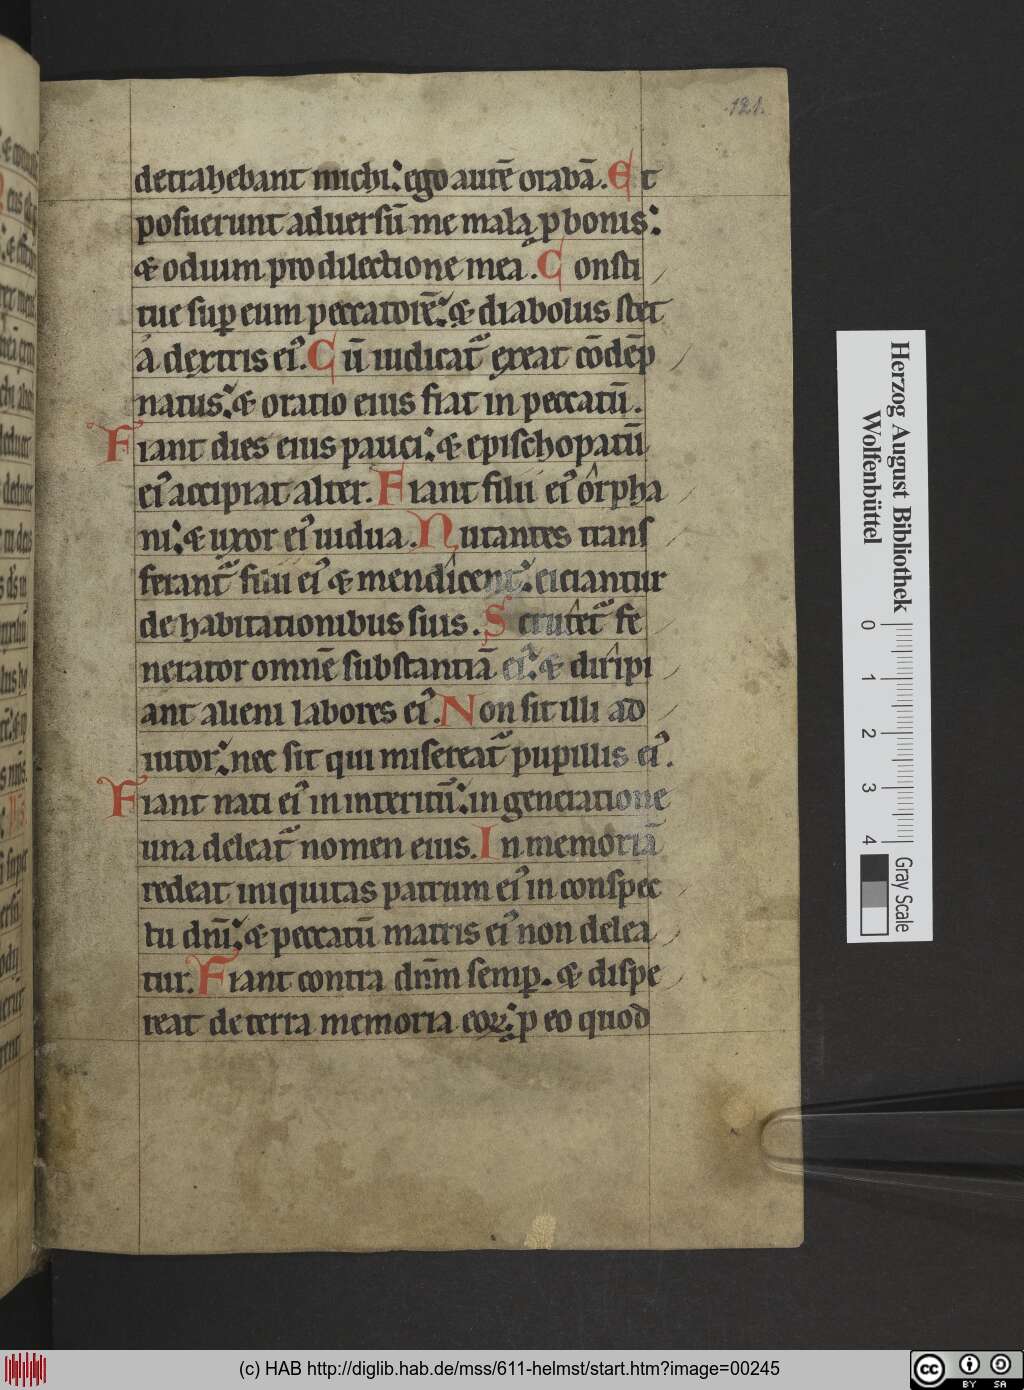 121.
detrahebant michi: ego autē orabā. Et
posuerunt aduersū me mala ꝓ bonis:
& odium pro dilectione mea. Consti
tue suꝑ eum peccatorē: & diabolus stet
a dextris ei᾿. Cū iudicat᷑ exeat cōdēp
natus: & oratio eius fiat in peccatū.
Fiant dies eius pauci: & epischopatū
ei᾿ accipiat alter. Fiant filii ei᾿ orpha
ni: & uxor ei᾿ uidua. Nutantes trans
ferant᷑ filii ei᾿ & mendicent: eiciantur
de habitationibus suis. Scrutet᷑ fe
nerator omnē substantiā ei᾿: & diripi
ant alieni labores ei᾿. Non sit illi ad
iutor: nec sit qui misereat᷑ pupillis ei᾿.
Fiant nati ei᾿ in interitū: in generatione
una deleat᷑ nomen eius. In memoriā
redeat iniquitas patrum ei᾿ in conspec
tu dnī: & peccatū matris ei᾿ non delea
tur. Fiant contra dnm̄ semꝑ. & dispe
reat de terra memoria eoꝝ: ꝓ eo quod
Herzog August Bibliothek
Wolfenbüttel
0 1 2 3 4
Gray Scale
(c) HAB http://diglib.hab.de/mss/611-helmst/start.htm?image=00245
cc BY SA